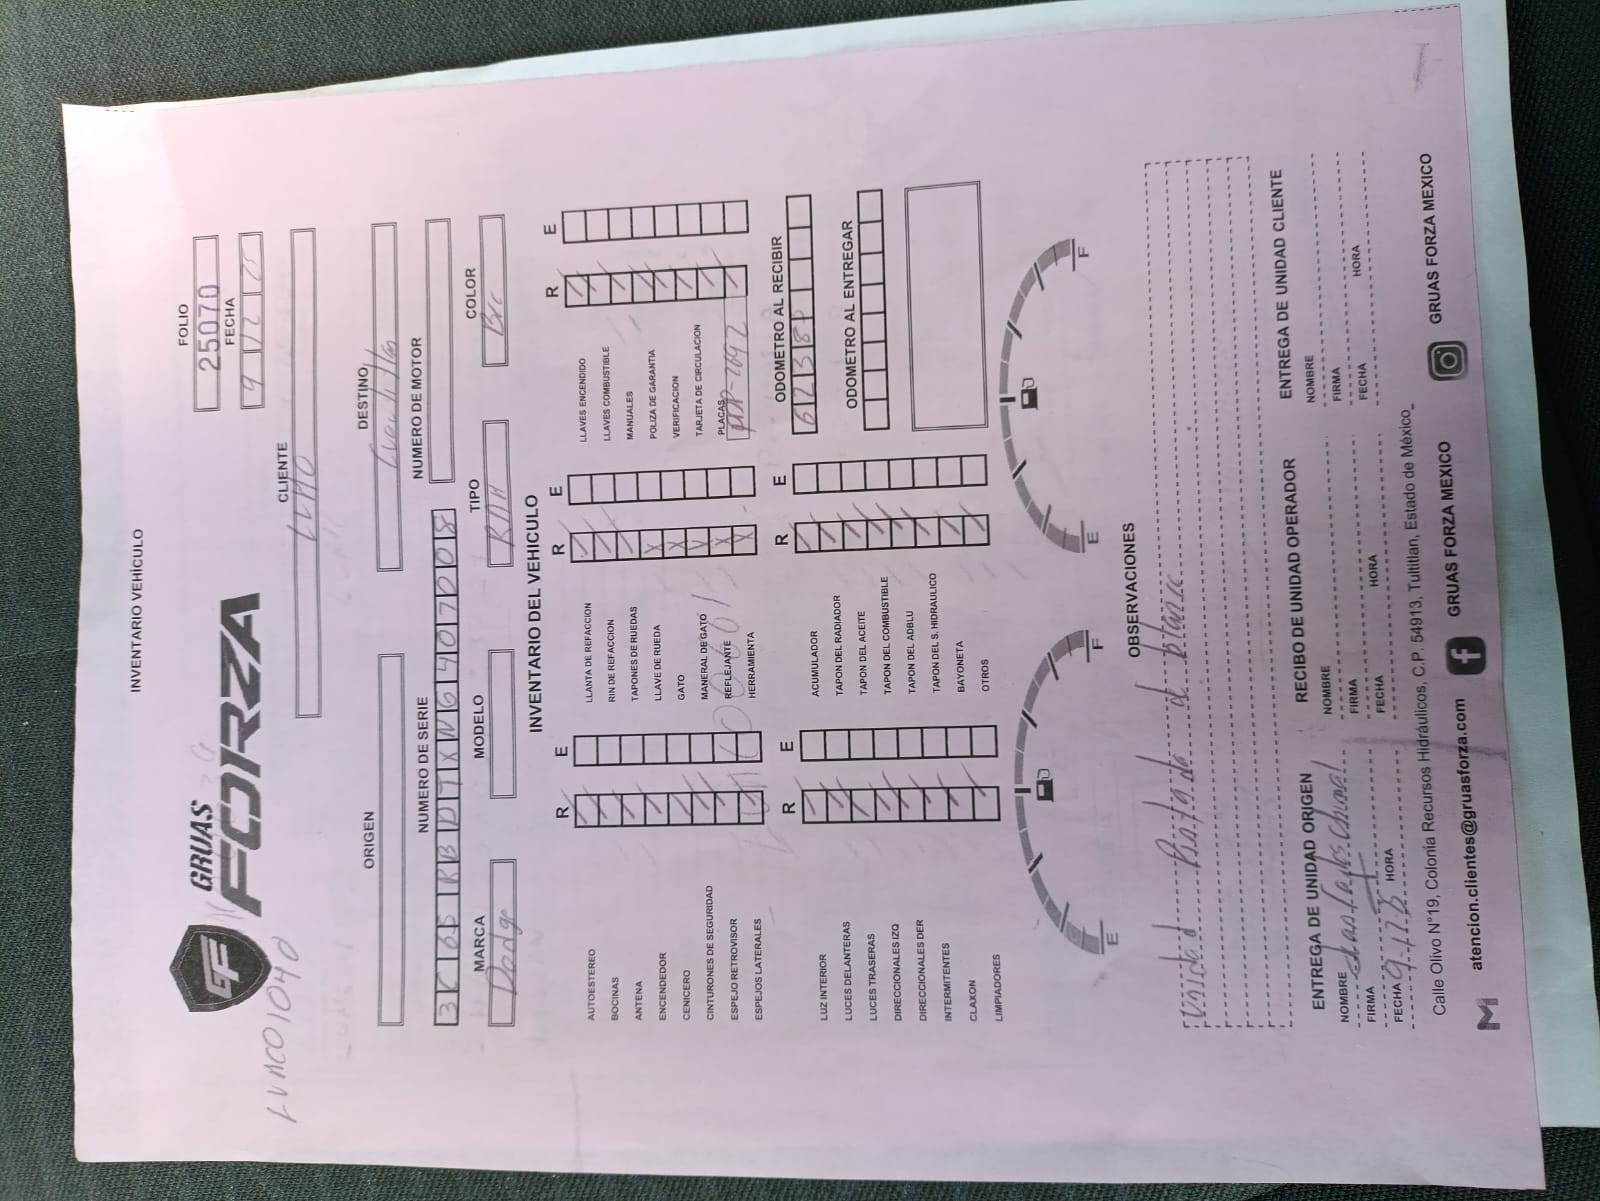 INVENTARIO VEHÍCULO
GRUAS
FORZA
GF
LVMC01040
FOLIO
25070
FECHA
9 12 25
CLIENTE
LUMO
ORIGEN
DESTINO
NUMERO DE SERIE
NUMERO DE MOTOR
MARCA
Dodge
MODELO
TIPO
RAM
COLOR
Bco
INVENTARIO DEL VEHICULO
R E
AUTOESTEREO
BOCINAS
ANTENA
ENCENDEDOR
CENICERO
CINTURONES DE SEGURIDAD
ESPEJO RETROVISOR
ESPEJOS LATERALES
R E
LLANTA DE REFACCION
RIN DE REFACCION
TAPONES DE RUEDAS
LLAVE DE RUEDA
GATO
MANERAL DE GATO
REFLEJANTE
HERRAMIENTA
R E
LLAVES ENCENDIDO
LLAVES COMBUSTIBLE
MANUALES
POLIZA DE GARANTIA
VERIFICACION
TARJETA DE CIRCULACION
PLACAS
R E
LUZ INTERIOR
LUCES DELANTERAS
LUCES TRASERAS
DIRECCIONALES IZQ
DIRECCIONALES DER
INTERMITENTES
CLAXON
LIMPIADORES
R E
ACUMULADOR
TAPON DEL RADIADOR
TAPON DEL ACEITE
TAPON DEL COMBUSTIBLE
TAPON DEL ADBLU
TAPON DEL S. HIDRAULICO
BAYONETA
OTROS
ODOMETRO AL RECIBIR
ODOMETRO AL ENTREGAR
E F
E F
OBSERVACIONES
de
ENTREGA DE UNIDAD ORIGEN
NOMBRE
FIRMA
FECHA 9-12-25 HORA
RECIBO DE UNIDAD OPERADOR
NOMBRE
FIRMA
FECHA HORA
ENTREGA DE UNIDAD CLIENTE
NOMBRE
FIRMA
FECHA HORA
Calle Olivo N°19, Colonia Recursos Hidráulicos, C.P. 54913, Tultitlan, Estado de México_
atencion.clientes@gruasforza.com
GRUAS FORZA MEXICO
GRUAS FORZA MEXICO